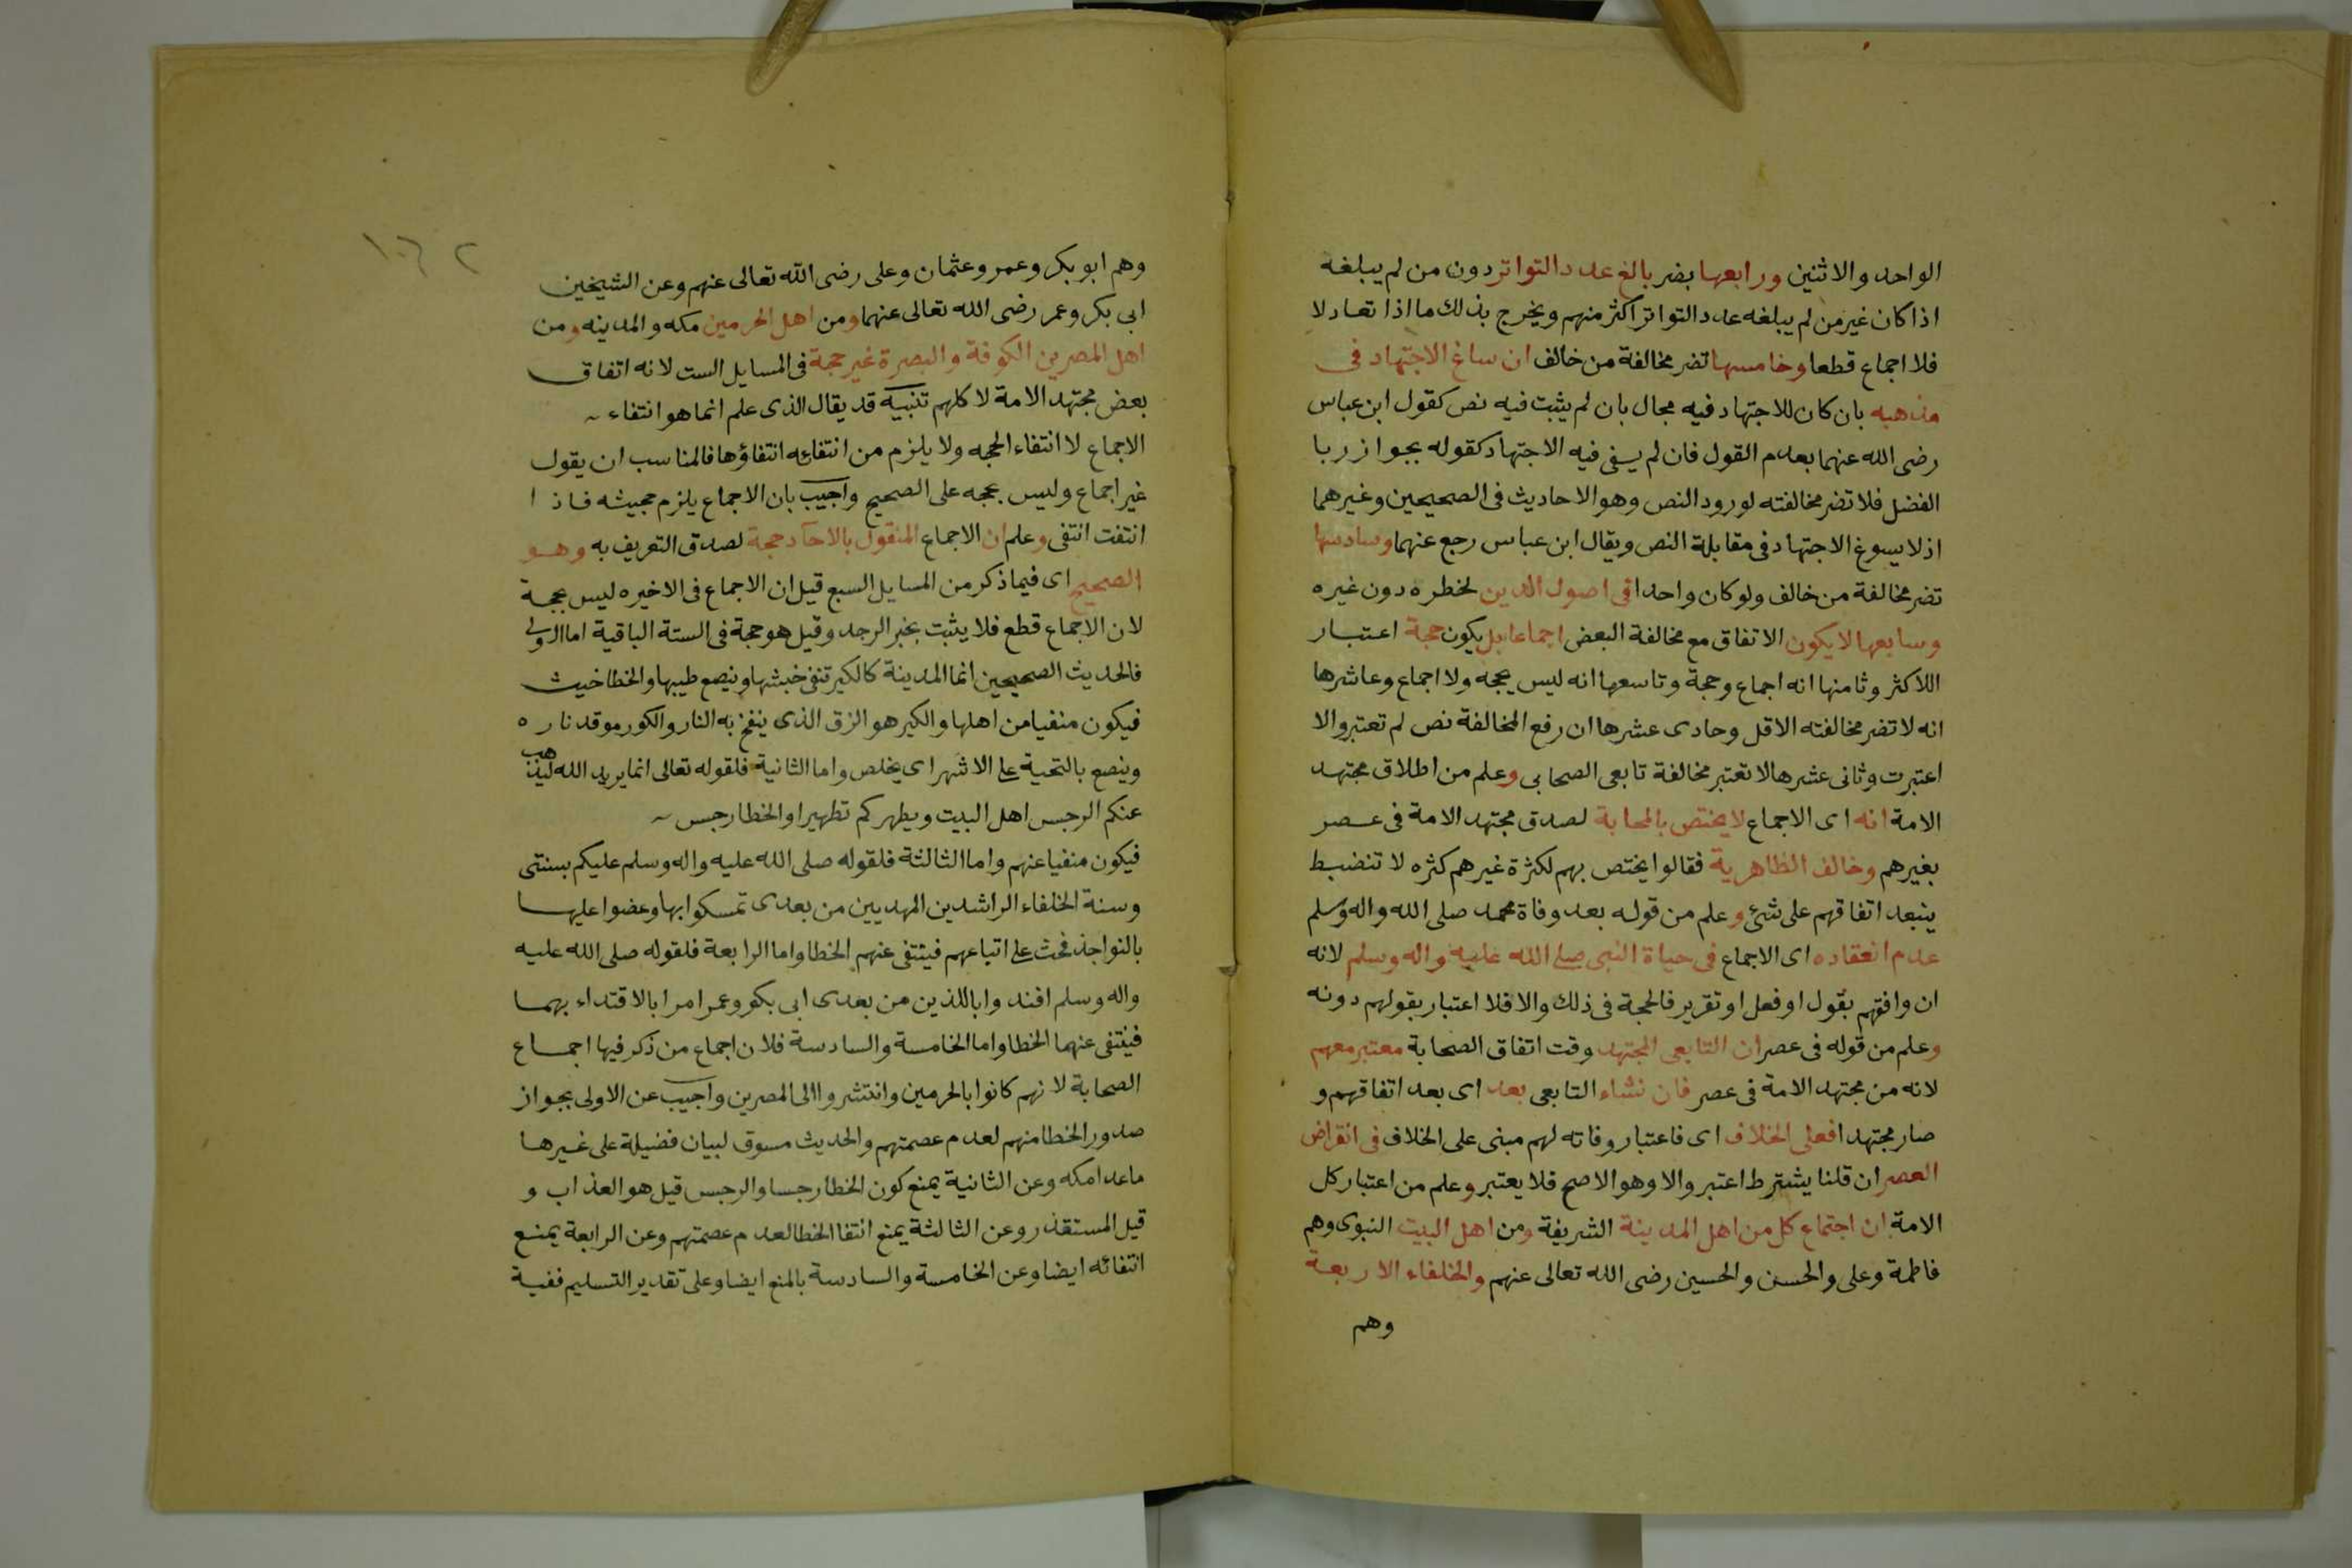 الواحد والاثنين ورابعها بضر بالغ عدد التواتر دون من لم يبلغه
اذا كان غير من لم يبلغه عدد التواتر اكثر منهم ويخرج بذلك ما اذا تعادلا
فلا اجماع قطعا وخامسها تضر مخالفة من خالف ان ساغ الاجتهاد في
مذهبه بان كان للاجتهاد فيه مجال بان لم يثبت فيه نص كقول ابن عباس
رضى الله عنهما بعدم القول فان لم يسغ فيه الاجتهاد كقوله بجواز ربا
الفضل فلا تضر مخالفته لورود النص وهو الاحاديث فى الصحيحين وغيرهما
اذ لا يسوغ الاجتهاد فى مقابلة النص ويقال ابن عباس رجع عنهما وسادسها
تضر مخالفة من خالف ولو كان واحدا فى اصول الدين لخطره دون غيره
وسابعها لا يكون الاتفاق مع مخالفة البعض اجماعا بل يكون حجة اعتبار
اللاكثر وثامنها انه اجماع وحجة وتاسعها انه ليس بحجه ولا اجماع وعاشرها
انه لا تضر مخالفته الاقل وحادى عشرها ان رفع المخالفة نص لم تعتبر والا
اعتبرت وثانى عشرها لا تعتبر مخالفة تابعى الصحابى وعلم من اطلاق مجتهد
الامة انه اى الاجماع لا يختص بالصحابة لصدق مجتهد الامة فى عصر
بغيرهم وخالف الظاهرية فقالوا يختص بهم لكثرة غيرهم كثره لا تنضبط
ينبعد اتفاقهم على شئ وعلم من قوله بعد وفاة محمد صلى الله واله وسلم
عدم انعقاده اى الاجماع فى حياة النبى صلى الله عليه واله وسلم لانه
ان وافقهم بقول او فعل او تقرير فالحجة فى ذلك والا فلا اعتبار بقولهم دونه
وعلم من قوله فى عصر ان التابعى المجتهد وقت اتفاق الصحابة معتبر معهم
لانه من مجتهد الامة فى عصر فان نشاء التابعى بعد اى بعد اتفاقهم و
صار مجتهدا فعلى الخلاف اى فاعتبار وفاته لهم مبنى على الخلاف فى انقراض
العصر ان قلنا يشترط اعتبر والا وهو الاصح فلا يعتبر وعلم من اعتبار كل
الامة ان اجتماع كل من اهل المدينة الشريفة ومن اهل البيت النبوى وهم
فاطمة وعلى والحسن والحسين رضى الله تعالى عنهم والخلفاء الاربعة
وهم
١٠٦ ٢
وهم ابو بكر وعمر وعثمان وعلى رضى الله تعالى عنهم وعن الشيخين
ابى بكر وعمر رضى الله تعالى عنهما ومن اهل الحرمين مكه والمدينه ومن
اهل المصرين الكوفة والبصرة غير حجة فى المسايل الست لانه اتفاق
بعض مجتهد الامة لا كلهم تنبيه قد يقال الذى علم انما هو انتفاء
الاجماع لا انتفاء الحجه ولا يلزم من انتفائه انتفاؤها فالمناسب ان يقول
غير اجماع وليس بحجه على الصحيح واجيب بان الاجماع يلزم حجيته فاذا
انتفت انتفى وعلم ان الاجماع المنقول بالاحآد حجة لصدق التعريف به وهو
الصحيح اى فيما ذكر من المسايل السبع قيل ان الاجماع فى الاخيره ليس بحجة
لان الاجماع قطع فلا يثبت بخبر الرجد وقيل هو حجة فى الستة الباقية اما الاولى
فالحديث الصحيحين انما المدينة كالكير تنفى خبثها وينصع طيبها والخطا خبث
فيكون منفيا من اهلها والكير هو الزق الذى ينفخ به النار والكور موقد ناره
وينصع بالتحية على الاشهر اى يخلص واما الثانية فلقوله تعالى انما يريد الله ليذهب
عنكم الرجس اهل البيت ويطهركم تطهيرا والخطا رجس
فيكون منفيا عنهم واما الثالثة فلقوله صلى الله عليه واله وسلم عليكم بسنتى
وسنة الخلفاء الراشدين المهديين من بعدى تمسكوا بها وعضوا عليها
بالنواجذ فحث على اتباعهم فينتفى عنهم الخطا واما الرابعة فلقوله صلى الله عليه
واله وسلم افتد وا باللذين من بعدى ابى بكر وعمر امرا بالاقتداء بهما
فينتفى عنهما الخطا واما الخامسة والسادسة فلان اجماع من ذكر فيها اجماع
الصحابة لانهم كانوا بالحرمين وانتشروا الى المصرين واجيب عن الاولى بجواز
صدور الخطا منهم لعدم عصمتهم والحديث مسوق لبيان فضيلة على غيرها
ماعدا مكه وعن الثانية يمنع كون الخطا رجسا والرجس قيل هو العذاب و
قيل المستقذر وعن الثالثة يمنع انتفا الخطا لعدم عصمتهم وعن الرابعة يمنع
انتفائه ايضا وعن الخامسة والسادسة بالمنع ايضا وعلى تقدير التسليم ففية